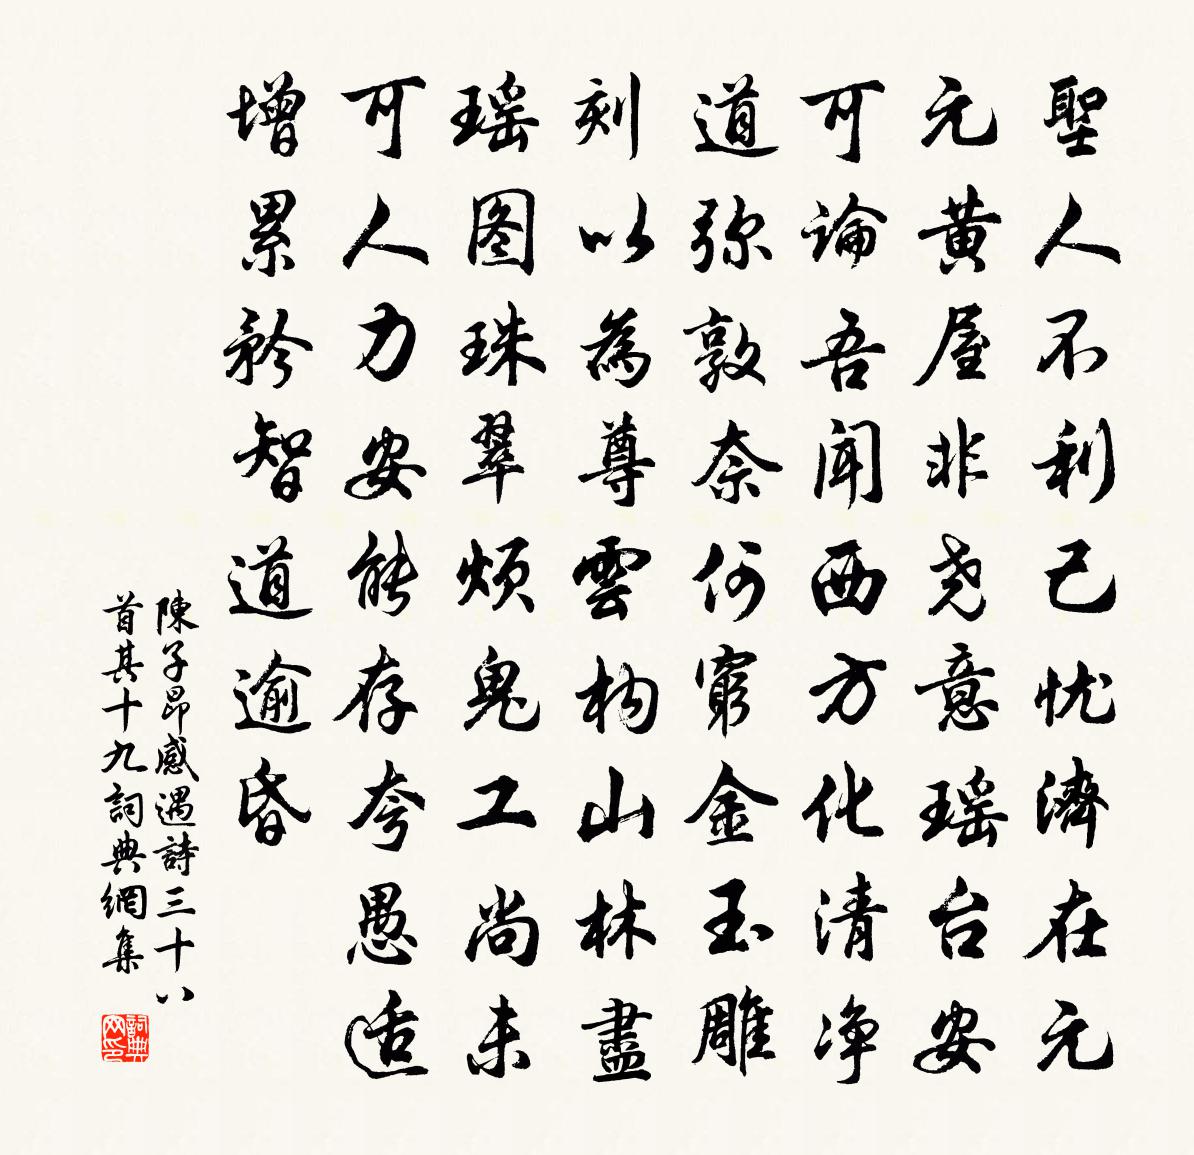 聖人不利己忧濟在元
元黃屋非尭意瑶台安
可論吾聞西方化清净
道弥敦奈何窮金玉雕
刻以為尊雲构山林盡
瑶图珠翠烦鬼工尚未
可人力安能存夸愚适
增累矜智道逾昏
陳子昂感遇詩三十八
首其十九詞典網集